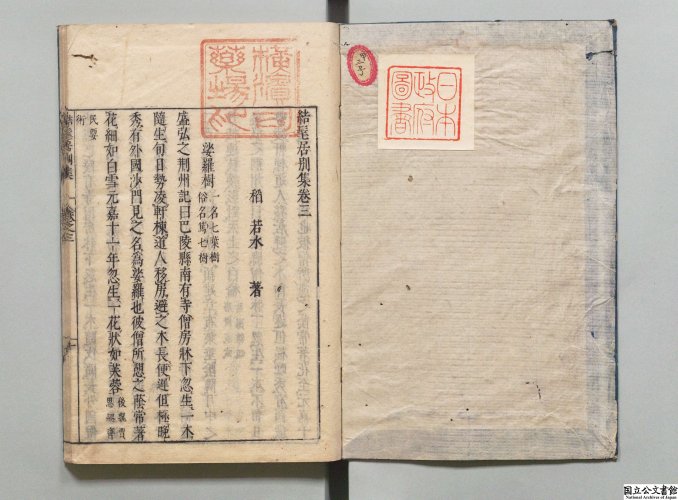 日本
政府
圖書
結髦居別集卷三
稻若水著
娑羅樹 一名七葉樹
俗名萬七樹
盛弘之荆州記曰巴陵縣南有寺僧房牀下忽生一木
隨生旬日勢凌軒棟道人移房避之木長便遲但極晚
秀有外國沙門見之名為娑羅也彼僧所憩之蔭常著
花細如白雪元嘉十一年忽生一花狀如芙蓉
民要
術
国立公文書館
National Archives of Japan